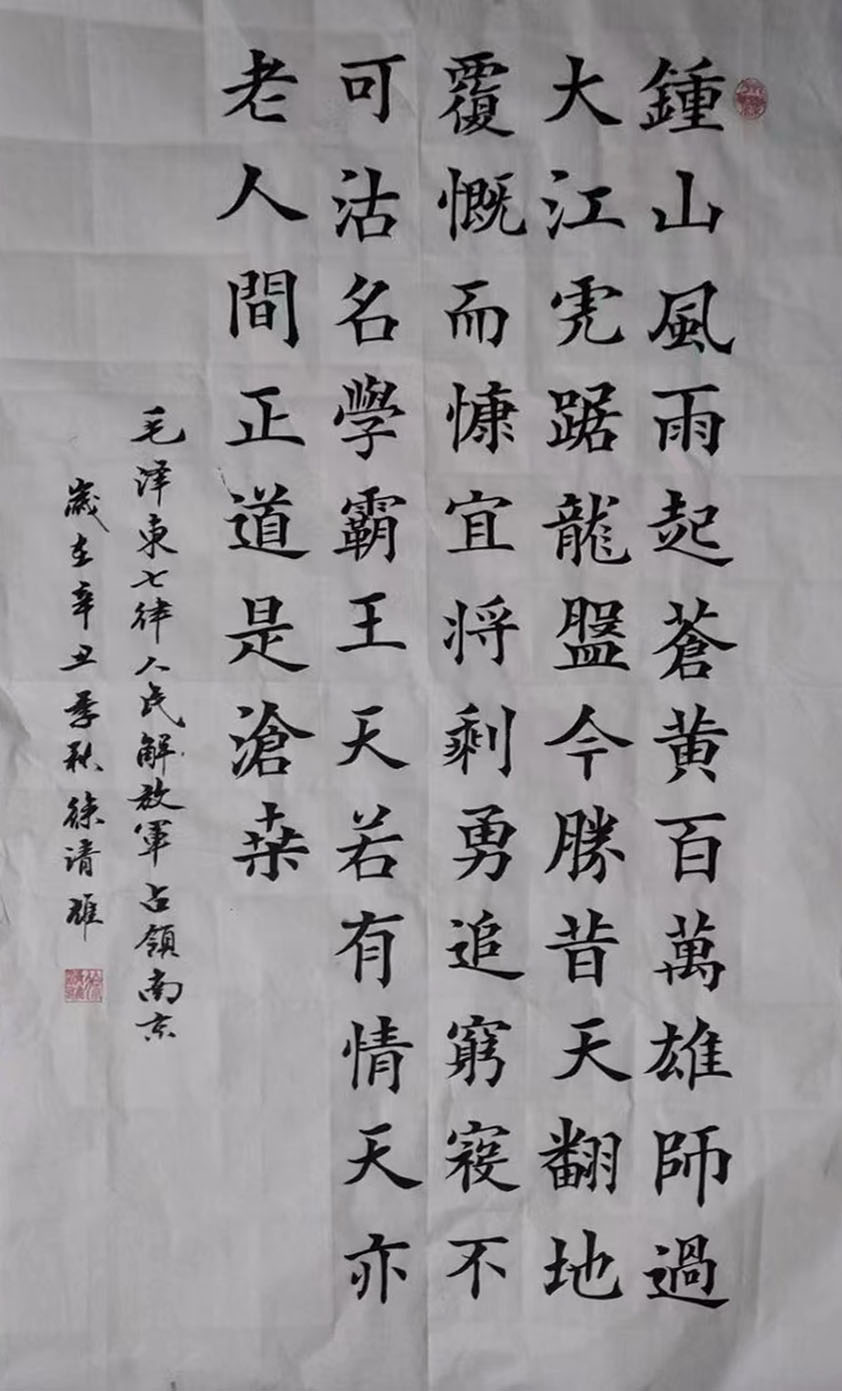 鍾山風雨起蒼黄百萬雄師過
大江虎踞龍盤今勝昔天翻地
覆慨而慷宜将剩勇追窮寇不
可沽名學霸王天若有情天亦
老人間正道是滄桑
毛泽東七律人民解放軍占領南京
歲在辛丑季秋徐清雄